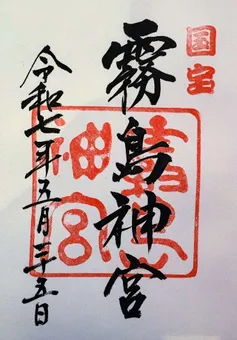 国宝
霧島神宮
霧島
神宮
令和七年五月二十五日